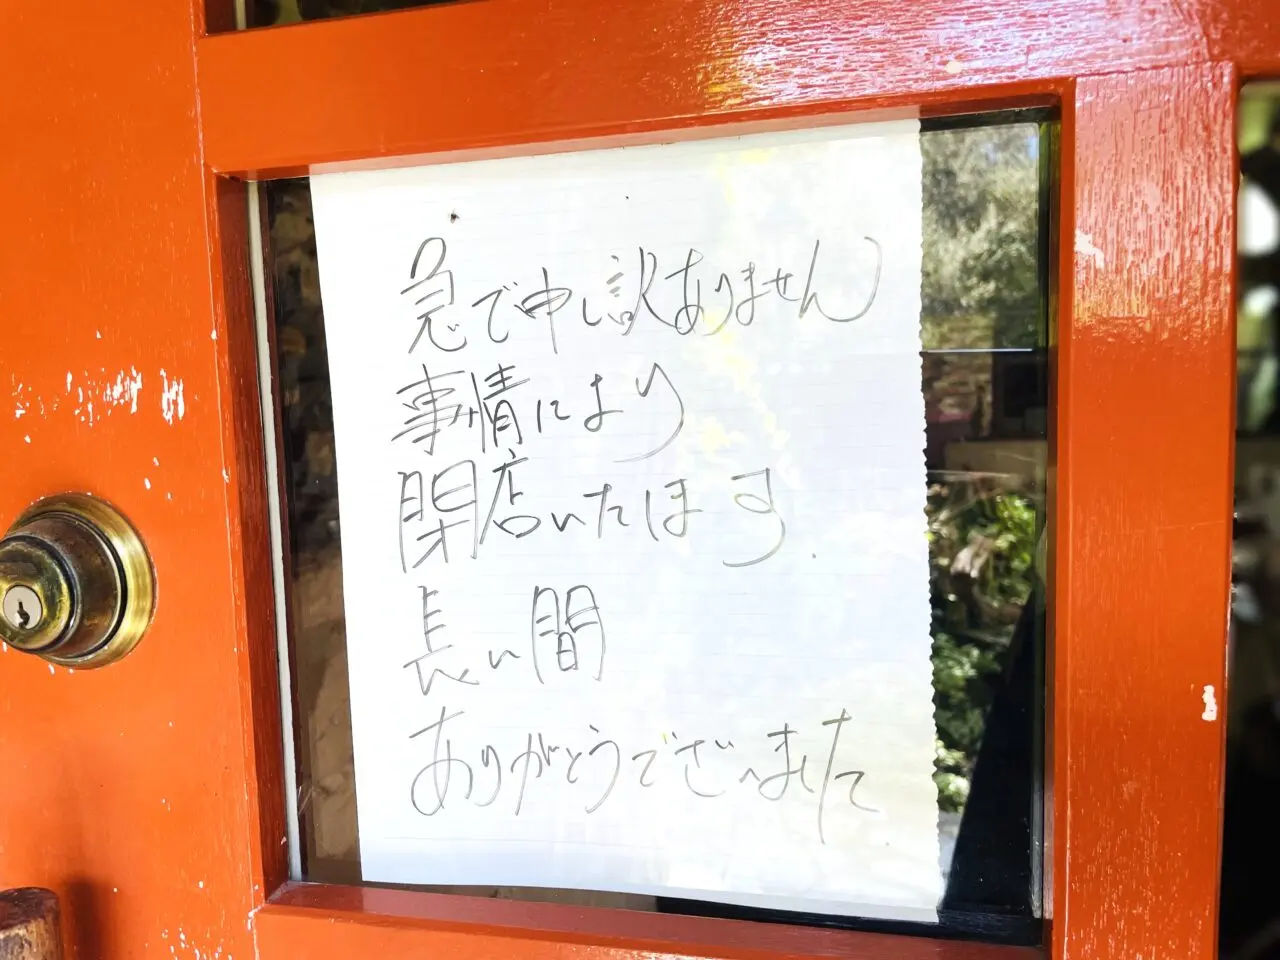 急で申し訳ありません
事情により
閉店いたします.
長い間
ありがとうございました